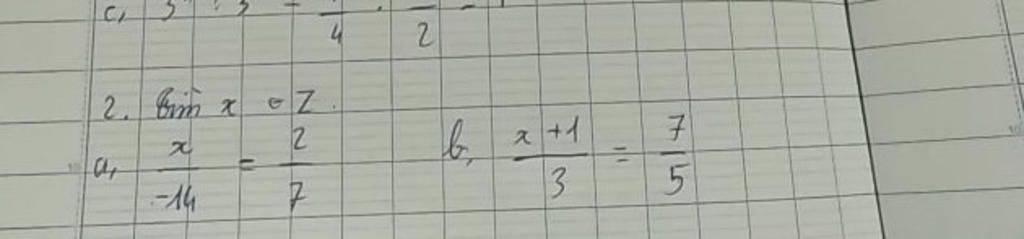 2. Tìm x ∈ Z.
a, x/-14 = 2/7 b, (x+1)/3 = 7/5